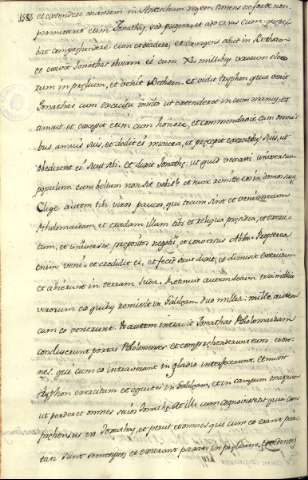 et extendere manum in Antiochum regem timens ne forte non
permitteret eum Jonathas, sed pugnaret adversus eum quære-
bat comprehendere eum et occidere, et exurgens abiit in Bethsan
et exivit Jonathas obviam ei cum millibus virorum electo-
rum in prælium, et venit Bethsan. et vidit Tryphon quia venit
Jonathas cum exercitu multo ut extenderet in eum manus, et
timuit et excepit eum cum honore, et commendavit eum omni-
bus amicis suis, et dedit ei munera, et præcepit exercitibus suis ut
obedirent ei sicut sibi. et dixit Jonathæ: ut quid vexasti universum
populum cum bellum non sit nobis? et nunc remitte eos in domos suas
Elige autem tibi viros paucos, qui tecum sint et veni mecum
Ptolemaidam, et tradam illam tibi et reliqua præsidia, et exerci-
tum, et universos præpositos negotii, et conversus abibo propterea
enim veni. et credidit ei, et fecit sicut dixit, et dimisit exercitum
et abierunt in terram Juda. Retinuit autem secum tria millia
virorum ex quibus remisit in Galilæam duo millia: mille autem
cum eo venerunt. Ut autem intravit Jonathas Ptolemaidam
clauserunt portas Ptolemenses et comprehenderunt eum et om-
nes, qui cum eo intraverant in gladio interfecerunt. et misit
Tryphon exercitum et equites in Galilæam, et in campum magnum
ut perderent omnes socios Jonathæ. At illi cum cognovissent quia com-
prehensus est Jonathas, et periit et omnes qui cum eo erant hor-
tati sunt semetipsos, et exierunt parati in prælium,